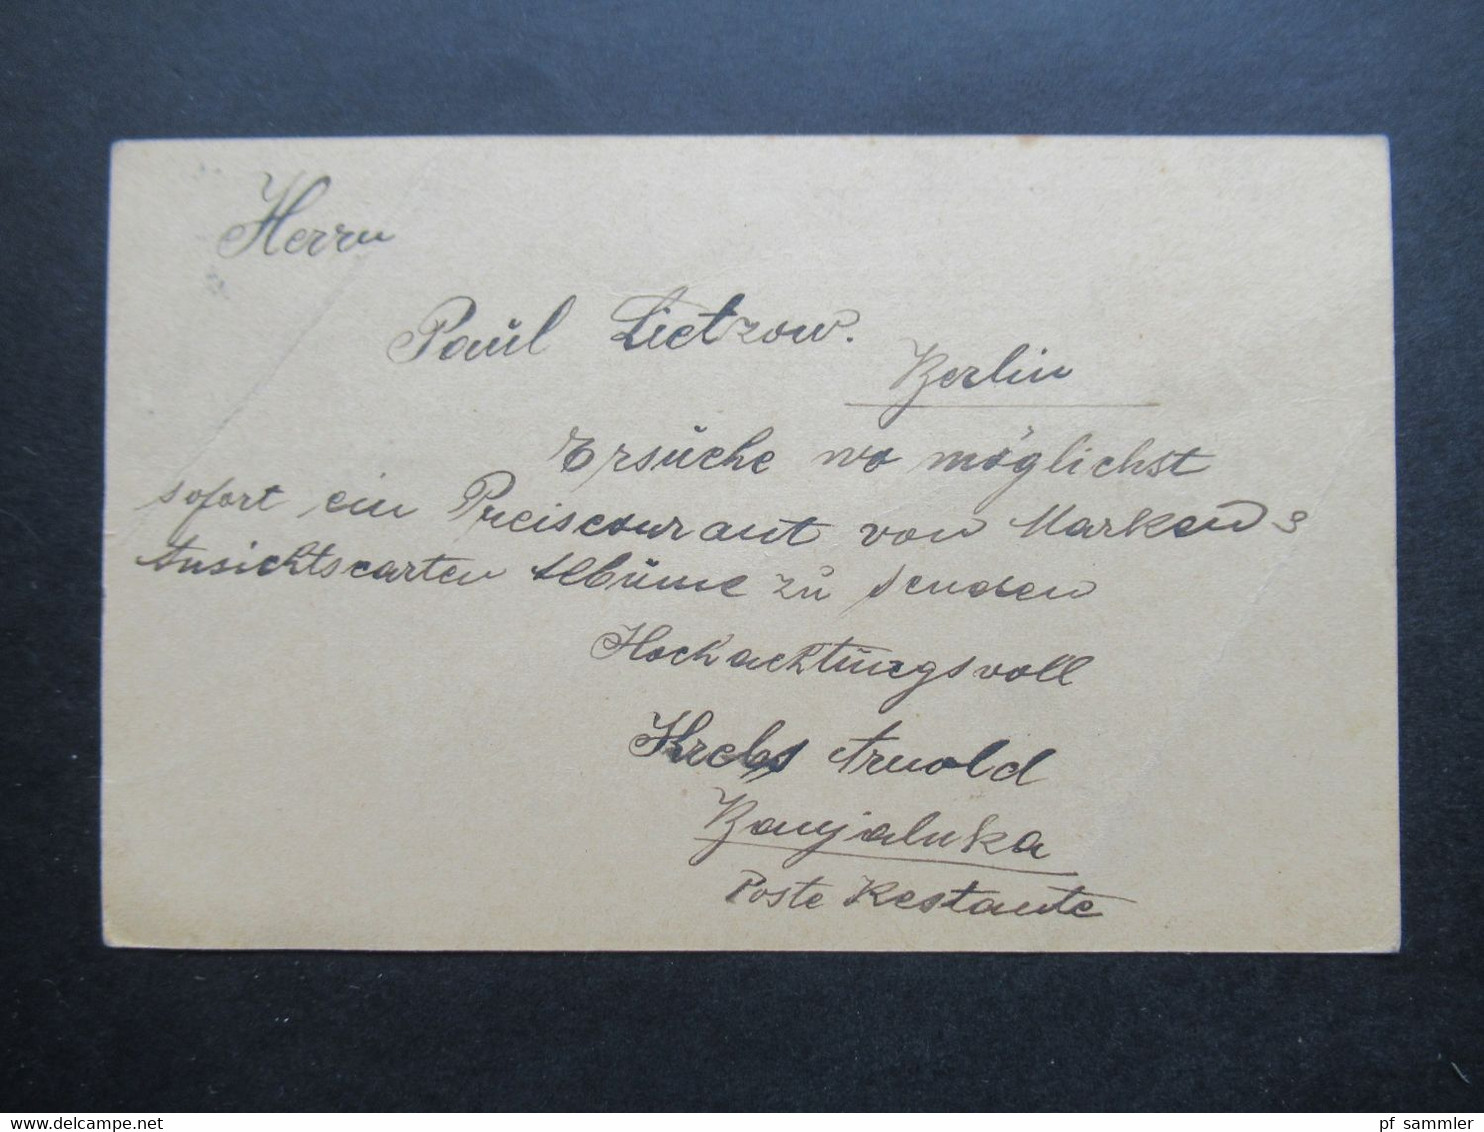 Herrn
Paul Lietzow.
Berlin
Ersuche wo möglichst
sofort ein Preiscourant von Marken &
Ansichtscarten Albume zu senden
Hochachtungsvoll
Krebs Arnold
Banjaluka
Poste Restante
delcampe.net
pf_sammler